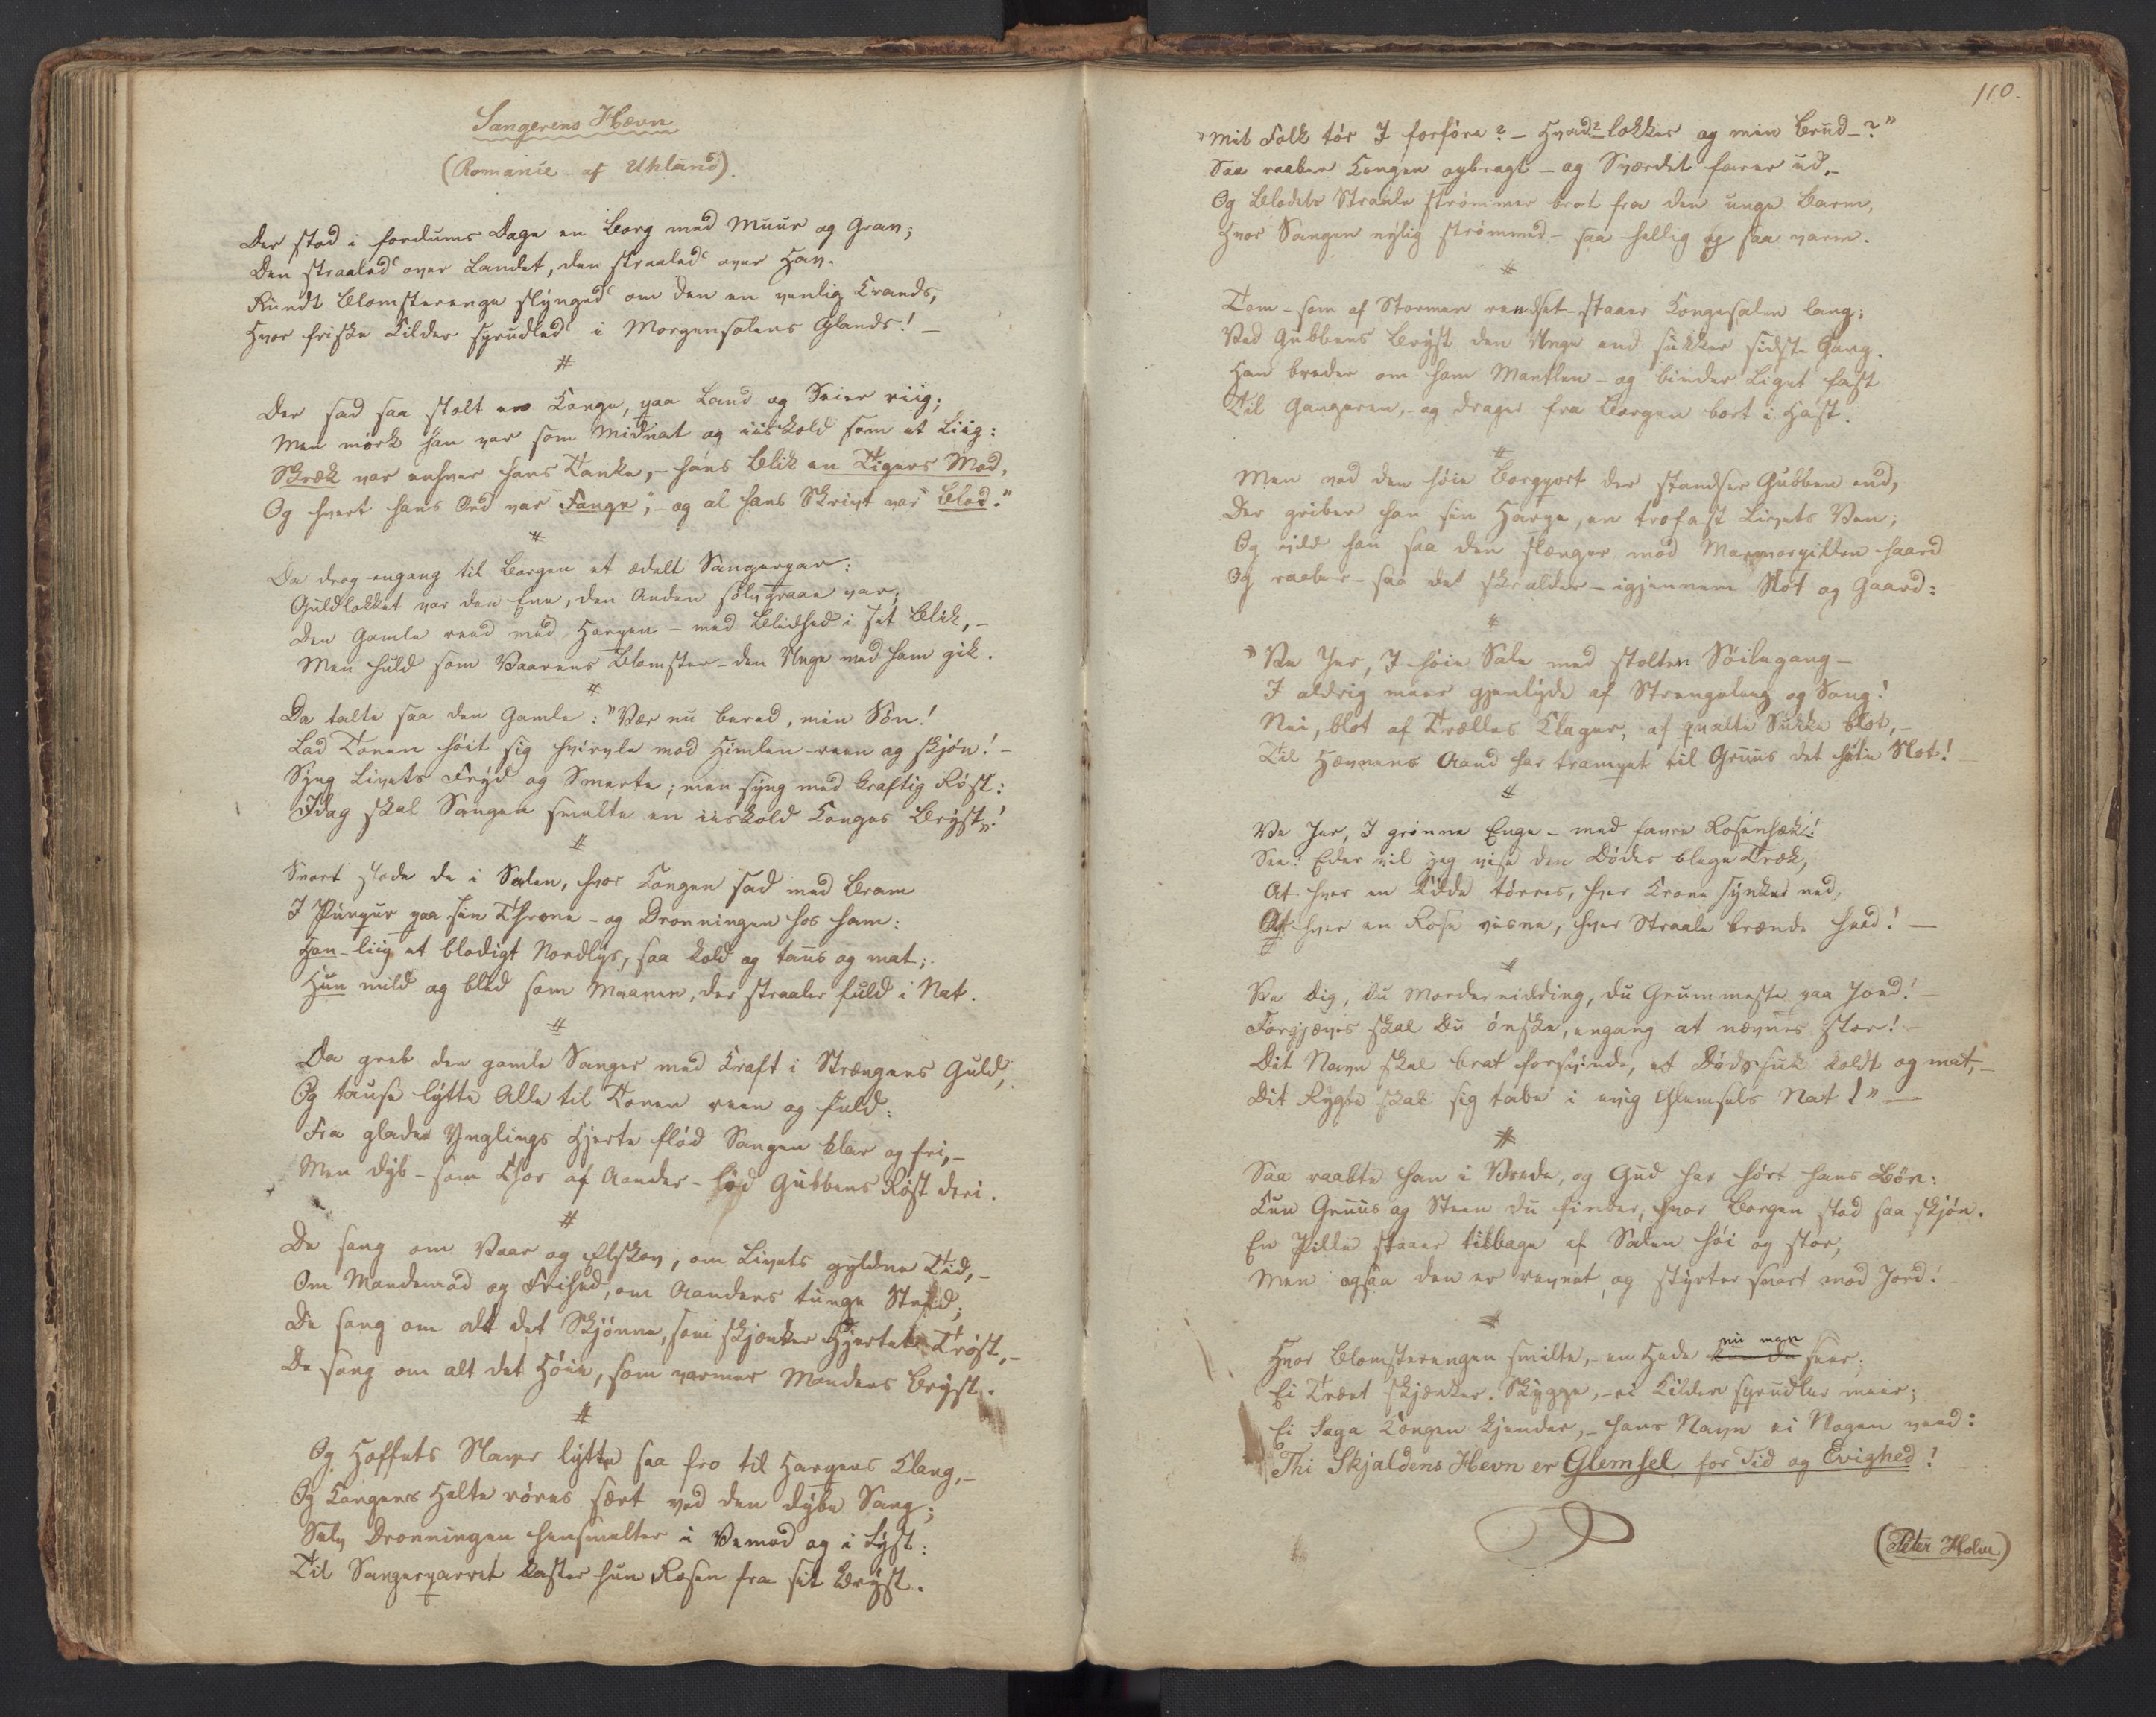 Sangerens Hævn
(Romance - af Uhland).
Der stod i fordums Dage en Borg med Muur og Gran;
Den straaled' over Landet, den straaled' over Hav.
Rundt Blomsterenge slynged' om den en venlig Krands,
Hvor friske Kilder sprudled' i Morgensolens Glands! -
#
Der sad saa stolt en Konge, paa Land og Seier riig;
Men mørk han var som Midnat og iiskold som et Liig:
Skræk var enhver hans Tanke, - hans Blik en Tigers Mod,
Og hvert hans Ord var "Fange", - og al hans Skrivt var "Blod."
#
Da drog engang til Borgen et ædelt Sangerpar:
Guldlokket var den Ene, den Anden sølvgraae var;
Den Gamle reed med Harpen - med Blidhed i sit Blik, -
Men huld som Vaarens Blomster - den Unge med ham gik.
#
Da talte saa den Gamle: "Vær nu bered, min Søn!
Lad Tonen høit sig hvirvle mod Himlen - reen og skjøn! -
Syng Livets Fryd og Smerte; men syng med kraftig Røst:
Idag skal Sangen smelte en iiskold Konges Bryst"!
#
Snart stode de i Salen, hvor Kongen sad med Bram
I Purpur paa sin Throne - og Dronningen hos ham:
Han - liig et blodigt Nordlys, saa kold og taus og mat;
Hun mild og blid som Maanen, der straaler fuld i Nat.
#
Da greb den gamle Sanger med Kraft i Strængens Guld,
Og tause lytte Alle til Tonen reen og fuld:
Fra glade Ynglings Hjerte flød Sangen klar og fri, -
Men dyb - som Chor af Aander - lød Gubbens Røst deri.
#
De sang om Vaar og Elskov, om Livets gyldne Tid, -
Om Mandemod og Frihed, om Aandens tunge Strid;
De sang om alt det Skjønne, som skjænker Hjertet Trøst, -
De sang om alt det Høie, som varmer Mandens Bryst.
#
Og Hoffets Slaver lytte saa fro til Harpens Klang, -
Og Kongens Helte røres sært ved den dybe Sang;
Selv Dronningen hensmelter i Vemod og i Lyst:
Til Sangerparret kaster hun Rosen fra sit Bryst.
110.
"Mit Folk tør I forføre? - Hvad? - lokker og min Brud -?"
Saa raaber Kongen opbragt - og Sværdet farer ud, -
Og Blodets Straale strømmer brat fra den unge Barm,
Hvor Sangen nylig strømmed - saa hellig og saa varm.
#
Tom - som af Stormen rendset - staaer Kongesalen lang;
Ved Gubbens Bryst den Unge end sukker sidste Gang.
Han breder om ham Mantlen - og binder Liget fast
Til Gangeren, - og drager fra Borgen bort i Hast.
#
Men ved den høie Borgport der standser Gubben end,
Der griber han sin Harpe, en trofast Livets Ven;
Og vild han saa den slænger mod Marmorpillen haard
Og raaber - saa det skralder - igjennem Slot og Gaard:
#
"Vee Jer, I høie Sale med stolten Søilegang -
I aldrig meer gjenlyde af Strengeleeg og Sang!
Nei, blot af Trælles Klager, af qvalte Sukke blot, -
Til Hævnens Aand har trampet til Gruus det høie Slot!
#
Ve Jer, I grønne Enge - med favre Rosenhæk!
See: Eder vil jeg vise den Dødes blege Træk,
At hver en Kilde tørres, hver Krone synker ned,
At hver en Rose visne, hver Straale brænde heed! -
#
Ve Dig, Du Mordernidding, du Grummeste paa Jord! -
Forgjæves skal Du ønske, engang at nævnes stor! -
Dit Navn skal brat forsvinde, et Dødssuk koldt og mat, -
Dit Rygte skal sig tabe i evig Glemsels Nat!" -
#
Saa raabte han i Vrede, og Gud har hørt hans Bøn:
Kun Gruus og Steen du finder, hvor Borgen stod saa skjøn.
En Pille staaer tilbage af Salen høi og stor,
Men ogsaa den er revnet, og styrter snart mod Jord!
#
Hvor Blomsterengen smilte, - en Hede nu man seer;
Ei Træet skjænker Skygge, - ei Kilden sprudler meer;
Ei Saga Kongen kjender, - hans Navn ei Nogen veed:
Thi Skjaldens Hevn er Glemsel for Tid og Evighed!
(Peter Holm)